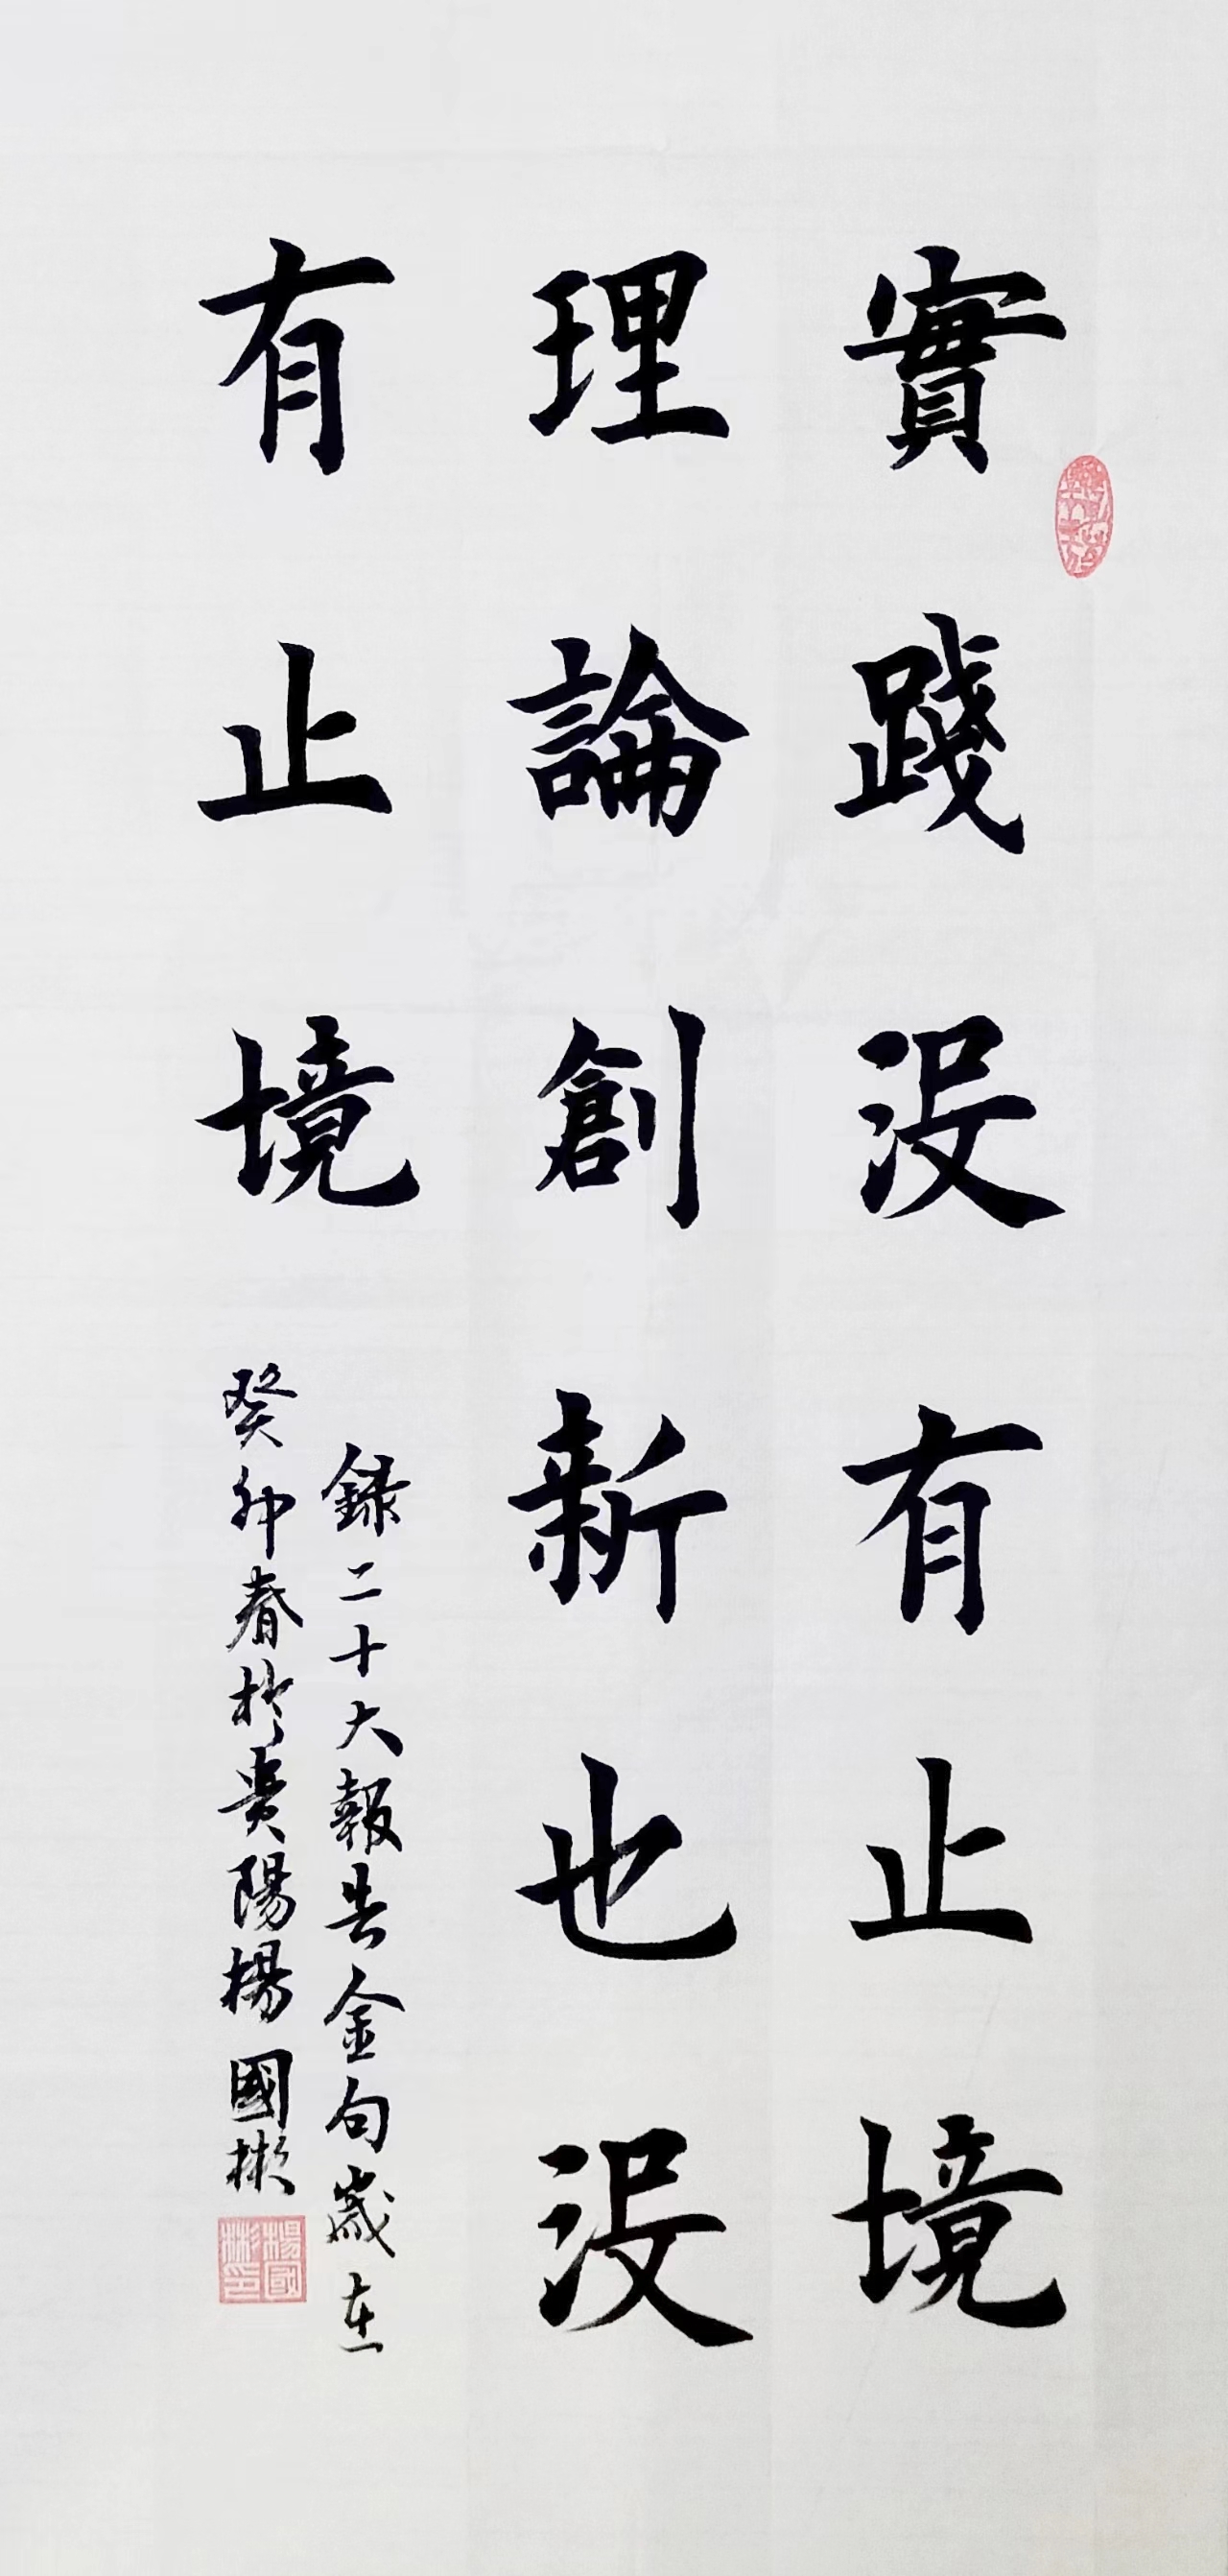 實踐没有止境
理論創新也没
有止境
録二十大報告金句歲在
癸卯春於貴陽楊國彬
楊國彬印